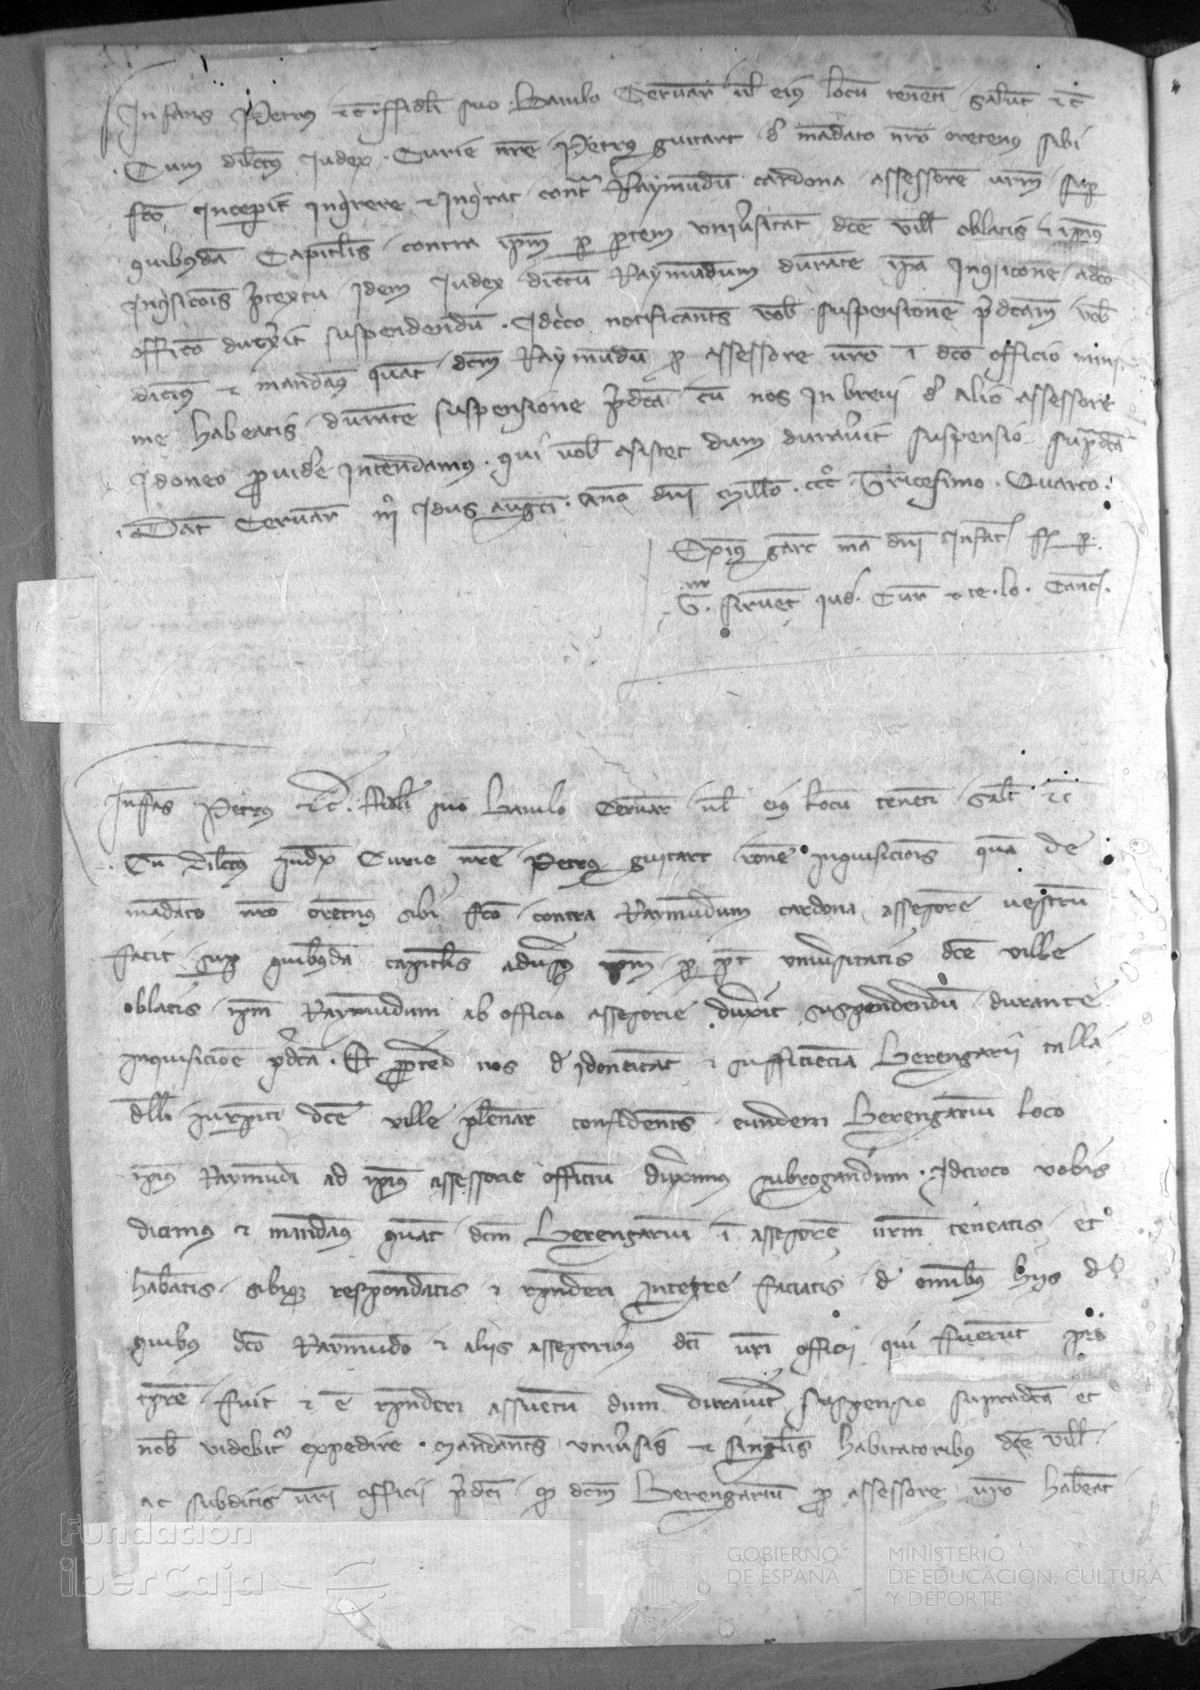 Infans Petrus etc fideli suo Baiulo Cervar vel eius locum tenenti salut etc
Cum dilectus Judex Curie nre Petrus guitart de mandato nro oretenus sibi
fco incepit inqrere et inqrat contra Raymundu cardona assessore vrm sup
quibusda Capitlis contra ipm p partem universitat dce ville oblatis et ipius
inqisicois pretextu idem Judex dictu Raymundum durate ipa inqisicone a dco
officio duxerit suspendendu. Idcirco notificantes vob suspensione pdcam vob
dicimus et mandamus quat dcm Raymundu p assessore vro i dco officio mini
me habeatis durante suspensione pdca cu nos in brevi de alio assessore
Idoneo providere intendamus qui vob assistet dum duraverit suspensio supdca
Dat Cervar iii Idus augsti Anno dni Millo ccc Tricesimo Quarto
garc ma dni Infat
G. sirvent iud. Cur et te. lo. Canc.
Infas Petrus etc. fideli suo Baiulo Cervar vel eius locu tenenti salt etc
Cu dilcus Judex Curie nre Petrus guitart rone inquisicionis qua de
madato nro oretenus sibi fco contra Raymudum cardona assessore vestru
facit sup quibusda capitlis adversus ipm p pt universitatis dce ville
oblatis ipm Raymudum ab officio assessorie duxerit suspendendu durante
inquisicioe pdca. Et nos de idoneitat et sufficiecia Berengarii talla
jurispiti dce ville plenar confidentes eundem Berengariu loco
ipius Raymudi ad ipius assessorie officiu duximus subrogandum. Idcirco vobis
dicimus et mandamus quat dcm Berengariu i assessore vrm teneatis et
habeatis sibique respondeatis et rpnderi integre faciatis de omnibus hiis de
quibus dco Raymudo et aliis assessoribus dci vri officii qui fuerut pro
tpre fuit et e rpnderi assuetu dum duraverit suspensio supradca et
nob videbitur expedire. Mandantes universis et singulis habitatoribus dce ville
ac subditis vri officii pdci q dcm Berengariu p assessore vro habeat
Fundación
iberCaja
GOBIERNO
DE ESPAÑA
MINISTERIO
DE EDUCACIÓN, CULTURA
Y DEPORTE